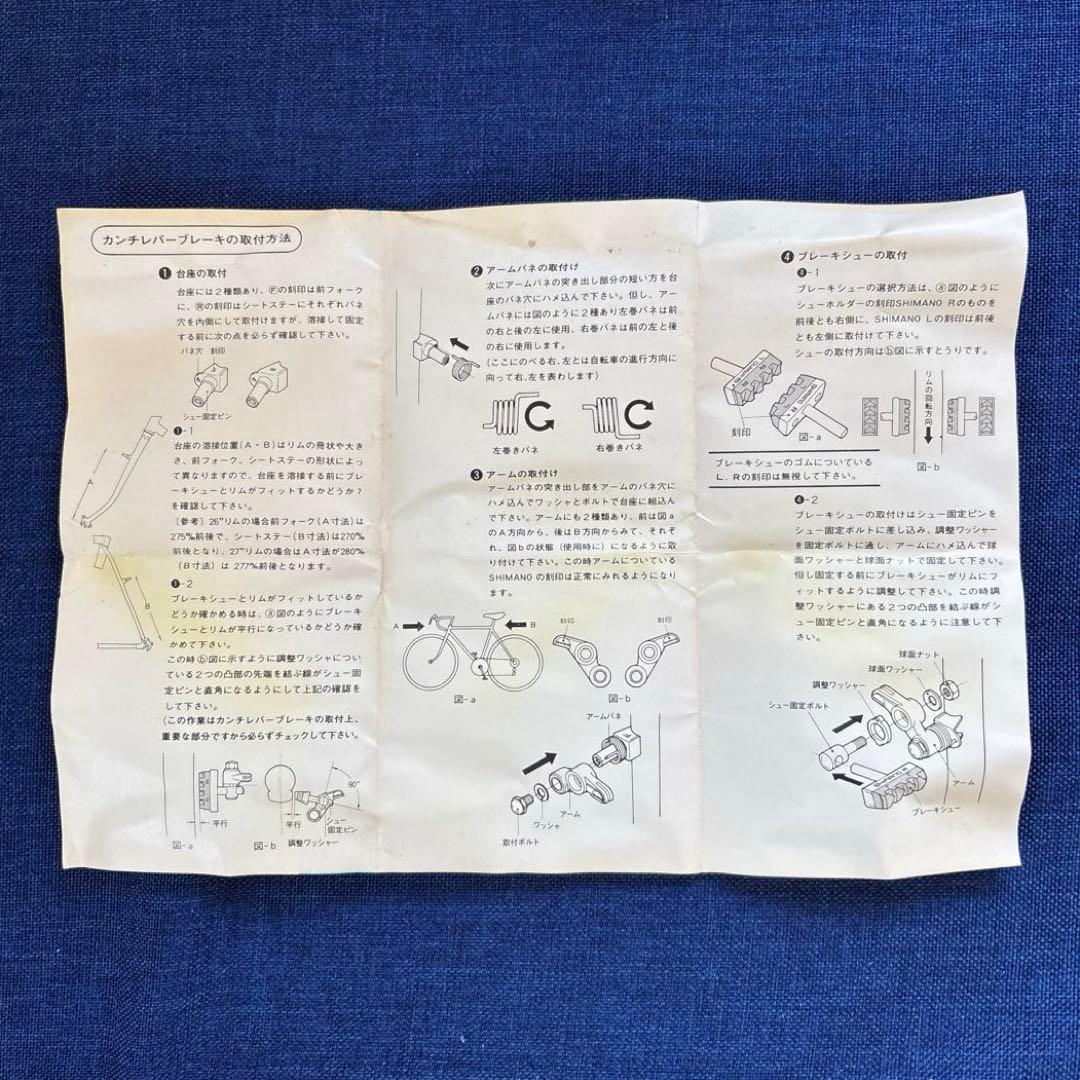 カンチレバーブレーキの取付方法
❶ 台座の取付
台座には2種類あり、Ⓕの刻印は前フォーク
に、Ⓡの刻印はシートステーにそれぞれバネ
穴を内側にして取付けますが、溶接して固定
する前に次の点を必らず確認して下さい。
バネ穴 刻印
シュー固定ピン
❶-1
台座の溶接位置(A・B)はリムの形状や大き
さ、前フォーク、シートステーの形状によっ
て異なりますので、台座を溶接する前にブレ
ーキシューとリムがフィットするかどうか?
を確認して下さい。
〔参考〕26"リムの場合前フォーク(A寸法)は
275㎜前後で、シートステー(B寸法)は270㎜
前後となり、27"リムの場合はA寸法が280㎜
(B寸法)は 277㎜前後となります。
A
❶-2
ブレーキシューとリムがフィットしているか
どうか確かめる時は、ⓐ図のようにブレーキ
シューとリムが平行になっているかどうか確
かめて下さい。
この時ⓑ図に示すように調整ワッシャについ
ている2つの凸部の先端を結ぶ線がシュー固
定ピンと直角になるようにして上記の確認を
して下さい。
(この作業はカンチレバーブレーキの取付上、
重要な部分ですから必らずチェックして下さい。
B
平行
図-a
90°
平行
シュー
固定ピン
図-b
調整ワッシャー
❷ アームバネの取付け
次にアームバネの突き出し部分の短い方を台
座のバネ穴にハメ込んで下さい。但し、アー
ムバネには図のように2種あり左巻バネは前
の右と後の左に使用、右巻バネは前の左と後
の右に使用します。
(ここにのべる右、左とは自転車の進行方向に
向って右、左を表わします)
左巻きバネ
右巻きバネ
❸ アームの取付け
アームバネの突き出し部をアームのバネ穴に
ハメ込んでワッシャとボルトで台座に組込ん
で下さい。アームにも2種類あり、前は図a
のA方向から、後はB方向からみて、それぞ
れ、図bの状態(使用時に)になるように取
り付けて下さい。この時アームについている
SHIMANO の刻印は正常にみれるようになり
ます。
A
B
図-a
刻印
刻印
図-b
アームバネ
アーム
ワッシャ
取付ボルト
❹ ブレーキシューの取付
❹-1
ブレーキシューの選択方法は、ⓐ図のように
シューホルダーの刻印SHIMANO Rのものを
前後とも右側に、SHIMANO Lの刻印は前後
とも左側に取付けて下さい。
シューの取付方向はⓑ図に示すとうりです。
刻印
図-a
リムの回転方向
図-b
ブレーキシューのゴムについている
L、Rの刻印は無視して下さい。
❹-2
ブレーキシューの取付けはシュー固定ピンを
シュー固定ボルトに差し込み、調整ワッシャー
を固定ボルトに通し、アームにハメ込んで球
面ワッシャーと球面ナットで固定して下さい。
但し固定する前にブレーキシューがリムにフ
ィットするように調整して下さい。この時調
整ワッシャーにある2つの凸部を結ぶ線がシ
ュー固定ピンと直角になるように注意して下
さい。
球面ナット
球面ワッシャー
調整ワッシャー
シュー固定ボルト
アーム
ブレーキシュー